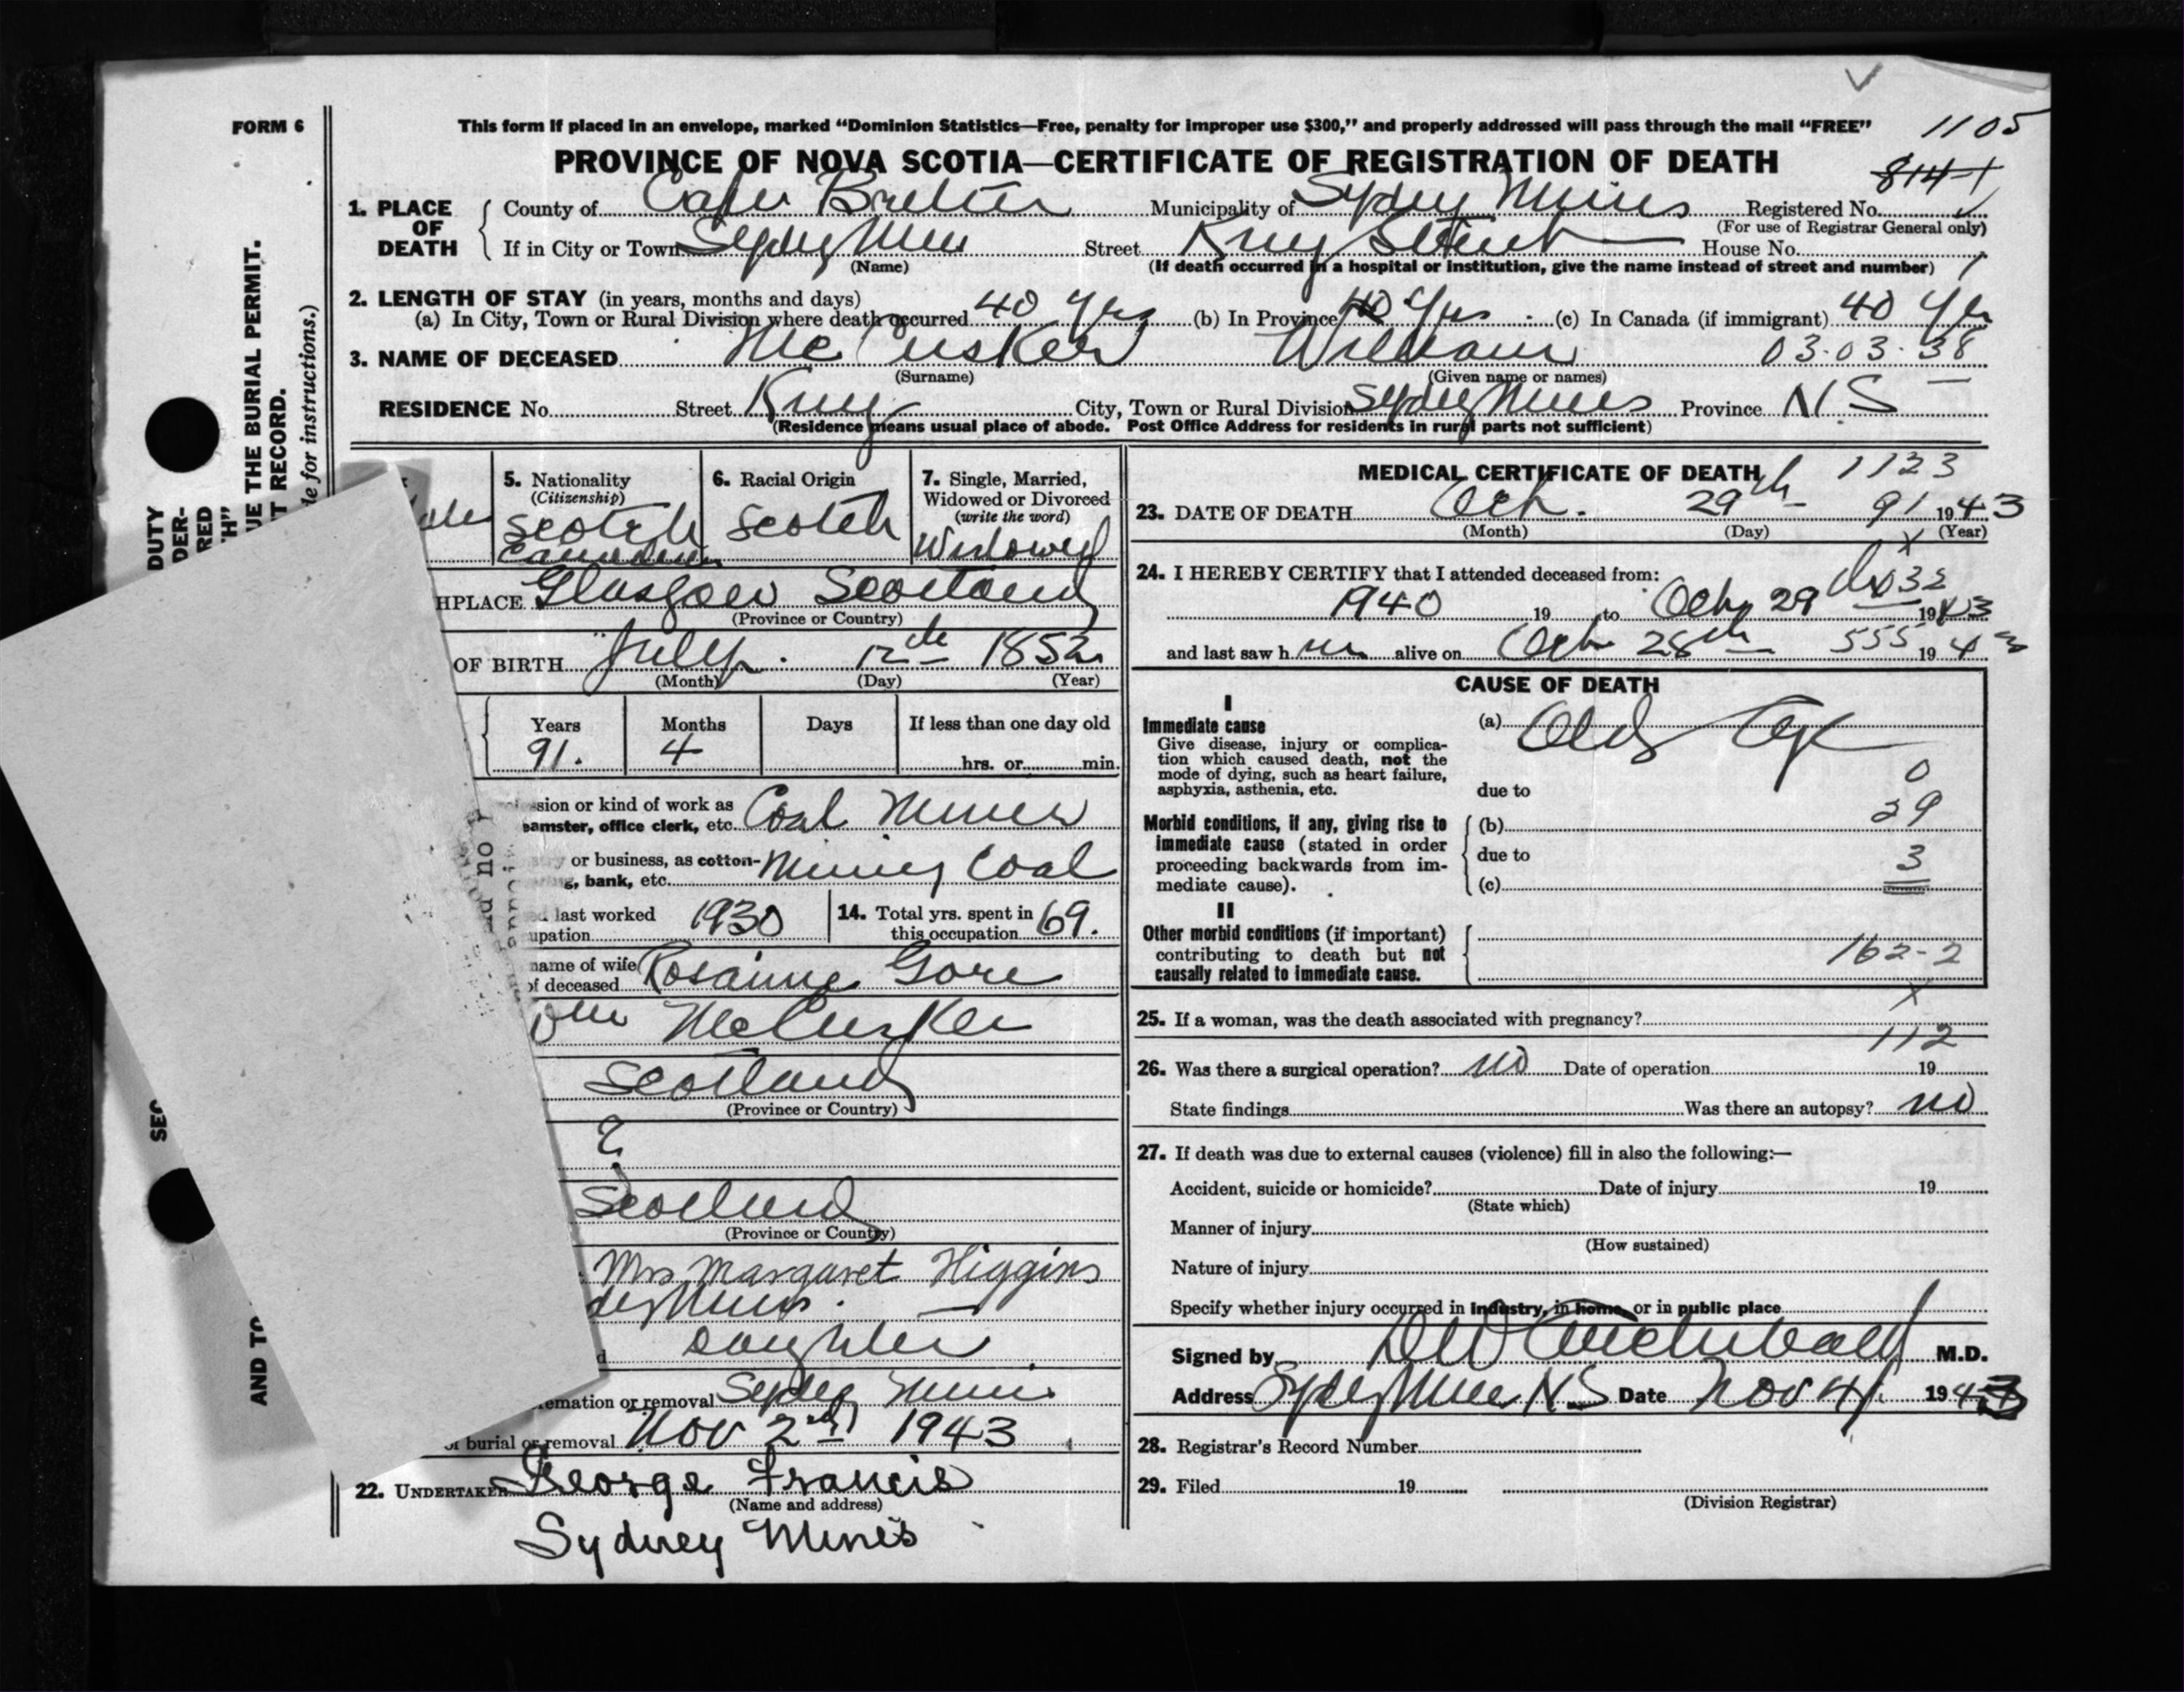 FORM 6
This form if placed in an envelope, marked “Dominion Statistics—Free, penalty for improper use $300,” and properly addressed will pass through the mail “FREE”
1105
PROVINCE OF NOVA SCOTIA—CERTIFICATE OF REGISTRATION OF DEATH
814-1
1. PLACE OF DEATH
County of Cape Breton Municipality of Sydney Mines Registered No.
(For use of Registrar General only)
If in City or Town Sydney Mines Street King Street House No.
(Name) (If death occurred in a hospital or institution, give the name instead of street and number)
2. LENGTH OF STAY (in years, months and days)
(a) In City, Town or Rural Division where death occurred 40 Yrs (b) In Province 40 Yrs (c) In Canada (if immigrant) 40 Yrs
3. NAME OF DECEASED McCusker William 03-03-38
(Surname) (Given name or names)
RESIDENCE No. Street King City, Town or Rural Division Sydney Mines Province N S
(Residence means usual place of abode. Post Office Address for residents in rural parts not sufficient)
5. Nationality
(Citizenship)
Scotch
Canadian
6. Racial Origin
Scotch
7. Single, Married,
Widowed or Divorced
(write the word)
Widowed
HPLACE Glasgow Scotland
(Province or Country)
OF BIRTH July 12th 1852
(Month) (Day) (Year)
Years Months Days If less than one day old
91. 4 hrs. or min.
sion or kind of work as
eamster, office clerk, etc. Coal Miner
or business, as cotton-
g, bank, etc. Mining Coal
last worked
upation 1930
14. Total yrs. spent in
this occupation 69.
name of wife
of deceased Rosanne Gore
McCusker
Scotland
(Province or Country)
?
Scotland
(Province or Country)
Mrs Margaret Higgins
Mines.
Daughter
emation or removal Sydney Mines
burial or removal Nov 2nd 1943
22. UNDERTAKER George Francis
(Name and address)
Sydney Mines
MEDICAL CERTIFICATE OF DEATH
1123
23. DATE OF DEATH Oct. 29th 91 1943
(Month) (Day) (Year)
24. I HEREBY CERTIFY that I attended deceased from:
1940 19 to Oct 29 1943
and last saw h im alive on Oct 28th 555 1943
CAUSE OF DEATH
I
Immediate cause
Give disease, injury or complica-
tion which caused death, not the
mode of dying, such as heart failure,
asphyxia, asthenia, etc.
(a) Old Age
due to
0
39
Morbid conditions, if any, giving rise to
immediate cause (stated in order
proceeding backwards from im-
mediate cause).
(b)
due to
3
(c)
II
Other morbid conditions (if important)
contributing to death but not
causally related to immediate cause.
162-2
25. If a woman, was the death associated with pregnancy?
112
26. Was there a surgical operation? no Date of operation 19
State findings Was there an autopsy? no
27. If death was due to external causes (violence) fill in also the following:—
Accident, suicide or homicide? Date of injury 19
(State which)
Manner of injury
(How sustained)
Nature of injury
Specify whether injury occurred in industry, in home, or in public place
Signed by D W Archibald M.D.
Address Sydney Mines N.S Date Nov 4 1943
28. Registrar's Record Number
29. Filed 19
(Division Registrar)
DUTY
DER-
RED
H”
UE THE BURIAL PERMIT.
T RECORD.
e for instructions.)
AND TO